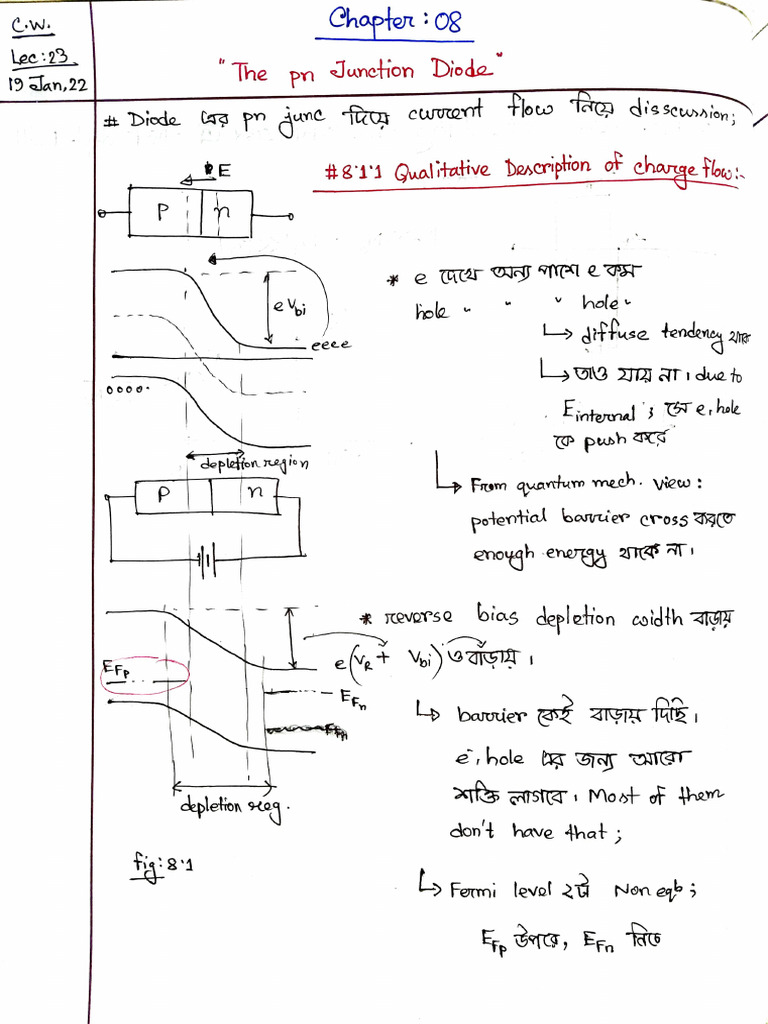 C.W.
Lec:23
19 Jan,22
Chapter: 08
"The pn Junction Diode"
# Diode এর pn junc দিয়ে current flow নিয়ে disscussion;
#8.1.1 Qualitative Description of charge flow:-
E
P n
eVbi
eeee
oooo.
depletion region
* e দেখে অন্য পাশে e কম
hole " " " hole "
↳ diffuse tendency থাকে
↳ তাও যায় না। due to
Einternal ; সে e, hole
কে push করে
↳ From quantum mech. view:
potential barrier cross করতে
enough energy থাকে না।
P n
* reverse bias depletion width বাড়ায়
e(VR + Vbi) ও বাঁড়ায়।
EFp
EFn
depletion reg.
fig: 8.1
↳ barrier কেই বাড়ায় দিছি।
e⁻, hole এর জন্য আরো
শক্তি লাগবে। Most of them
don't have that;
↳ Fermi level ২টা Non eqb;
EFp উপরে, EFn নিচে